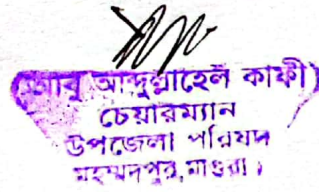 (আবু আব্দুল্লাহেল কাফী)
চেয়ারম্যান
উপজেলা পরিষদ
মহম্মদপুর, মাগুরা।